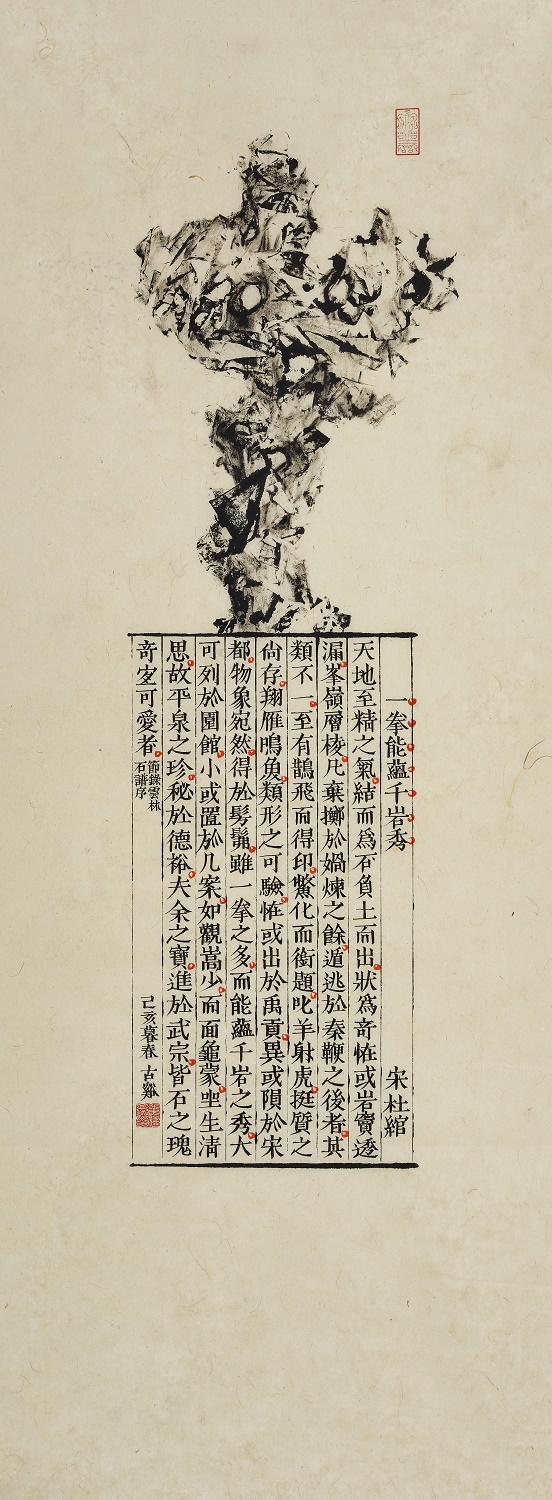 一拳能蘊千岩秀 宋杜綰
天地至精之氣結而為石負土而出狀為奇怪或岩竇透
漏峯嶺層棱凡棄擲於媧煉之餘遁逃於秦鞭之後者其
類不一至有鵲飛而得印鱉化而銜題叱羊射虎挺質之
尚存翔雁鳴魚類形之可驗怪或出於禹貢異或隕於宋
都物象宛然得於髣髴雖一拳之多而能蘊千岩之秀大
可列於園館小或置於几案如觀嵩少而面龜蒙坐生清
思故平泉之珍秘於德裕夫余之寶進於武宗皆石之瑰
奇宜可愛者
節錄雲林
石譜序
己亥暮春 古谿